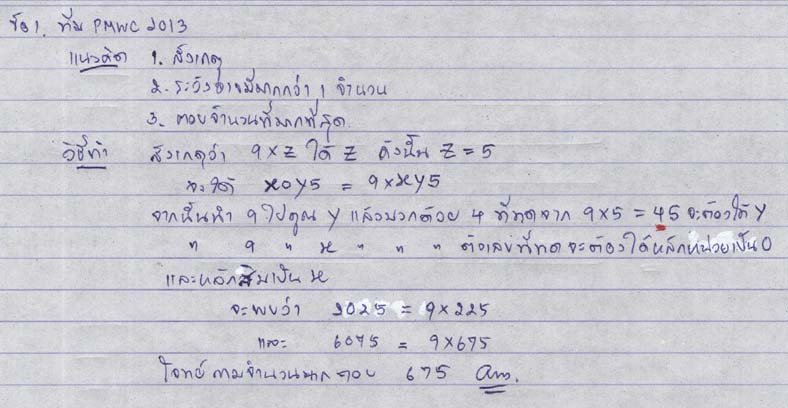 ข้อ 1. ทีม PMWC 2013
แนวคิด 1. สังเกต
2. ระวังอาจมีมากกว่า 1 จำนวน
3. ตอบจำนวนที่มากที่สุด
วิธีทำ สังเกตว่า 9 x Z ได้ Z ดังนั้น Z = 5
จะได้ x0y5 = 9 x xy5
จากนั้นนำ 9 ไปคูณ y แล้วบวกด้วย 4 ที่ทดจาก 9x5 = 45 จะต้องได้ y
" 9 " x " " " ตัวเลขที่ทดจะต้องได้หลักหน่วยเป็น 0
และหลักสิบเป็น x
จะพบว่า 2025 = 9 x 225
และ 6075 = 9 x 675
โจทย์ถามจำนวนมาก ตอบ 675 Ans.